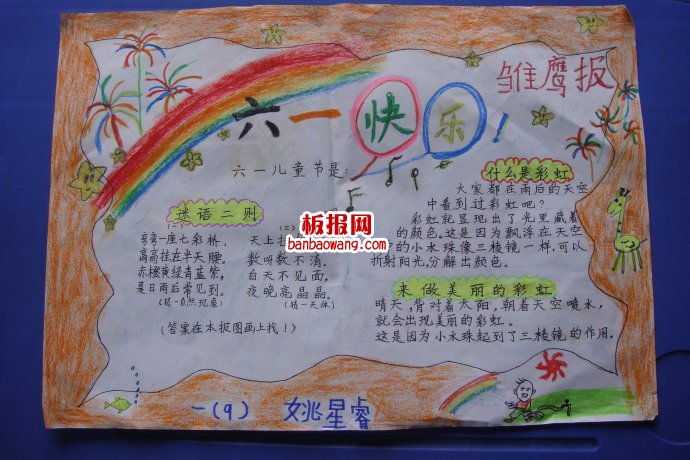 雏鹰报
六一快乐！
六一儿童节是：
谜语二则
（一）
弯弯一座七彩桥，
高高挂在半天腰。
赤橙黄绿青蓝紫，
夏日雨后常见到。
（猜一自然现象）
（二）
天上
数呀数不清。
白天不见面，
夜晚亮晶晶。
（猜一天体）
（答案在本报图画上找！）
什么是彩虹
大家都在雨后的天空
中看到过彩虹吧？
彩虹就显现出了光里藏着
的颜色。这是因为飘浮在天空
的小水珠像三棱镜一样，可以
折射阳光，分解出颜色。
来做美丽的彩虹
晴天，背对着太阳，朝着天空喷水，
就会出现美丽的彩虹。
这是因为小水珠起到了三棱镜的作用。
一（9） 姚星睿
板报网
banbaowang.com